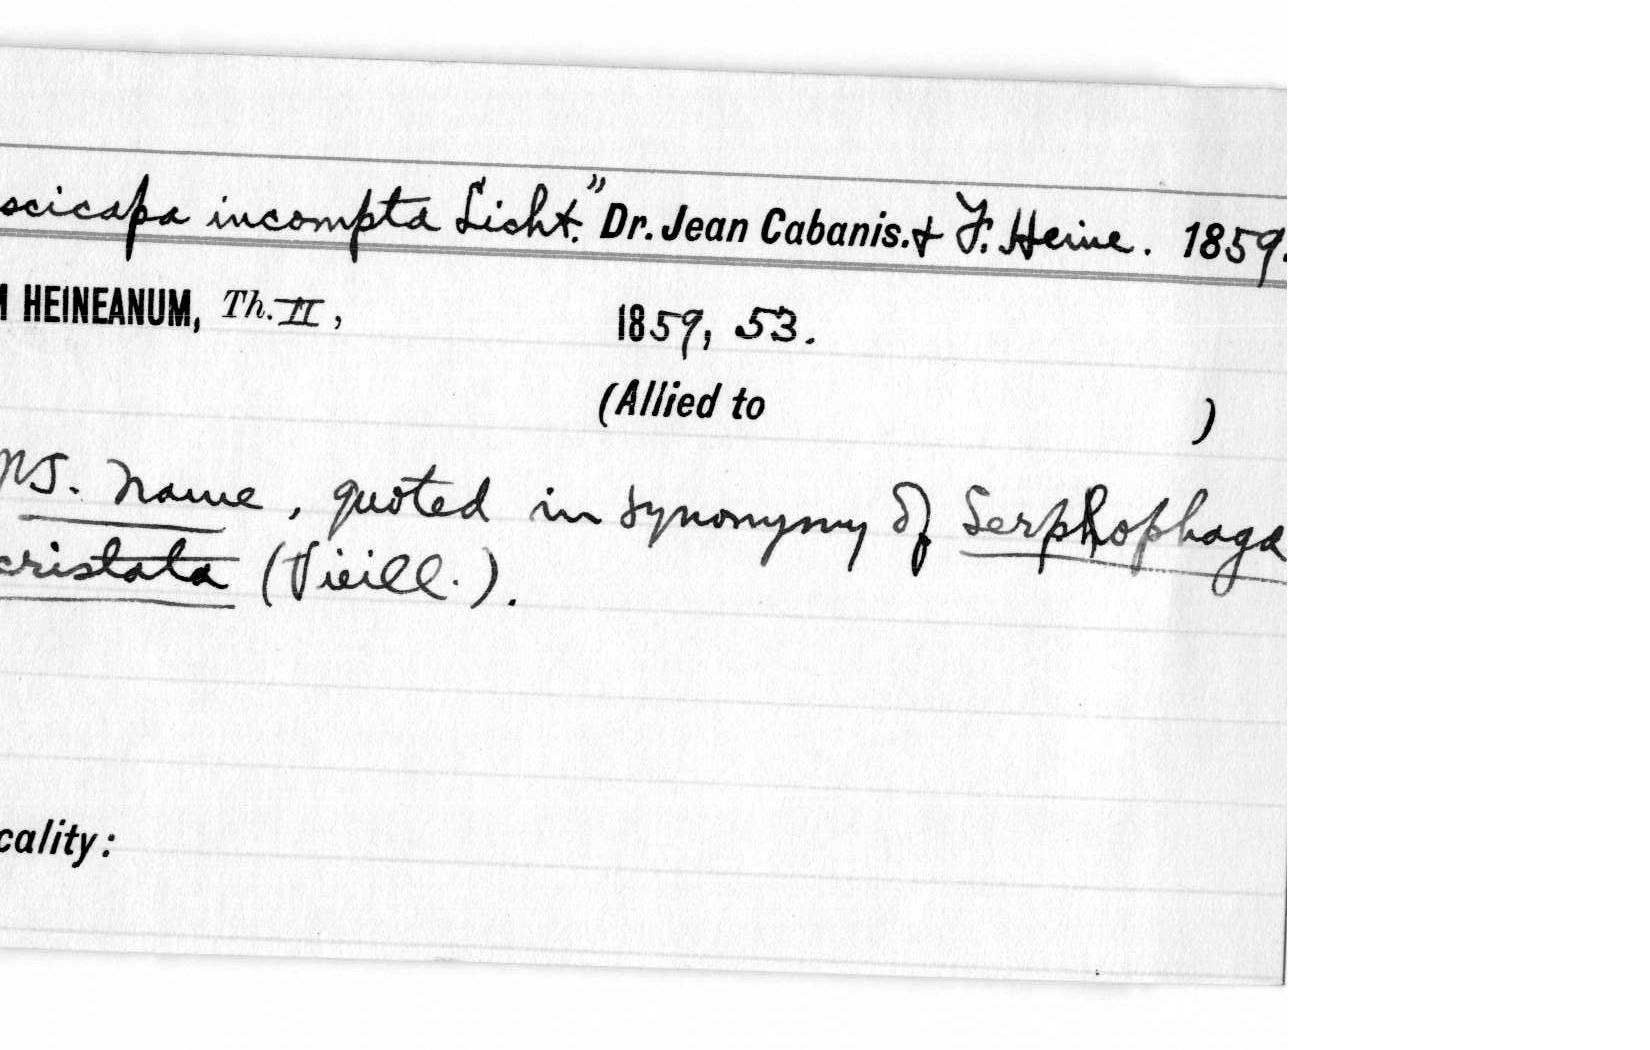 scicapa incompta Licht." Dr. Jean Cabanis. & F. Heine. 1859.
HEINEANUM, Th. II, 1859, 53.
(Allied to )
MS. name, quoted in synonymy of Serphophaga
cristata (Vieill.).
cality: